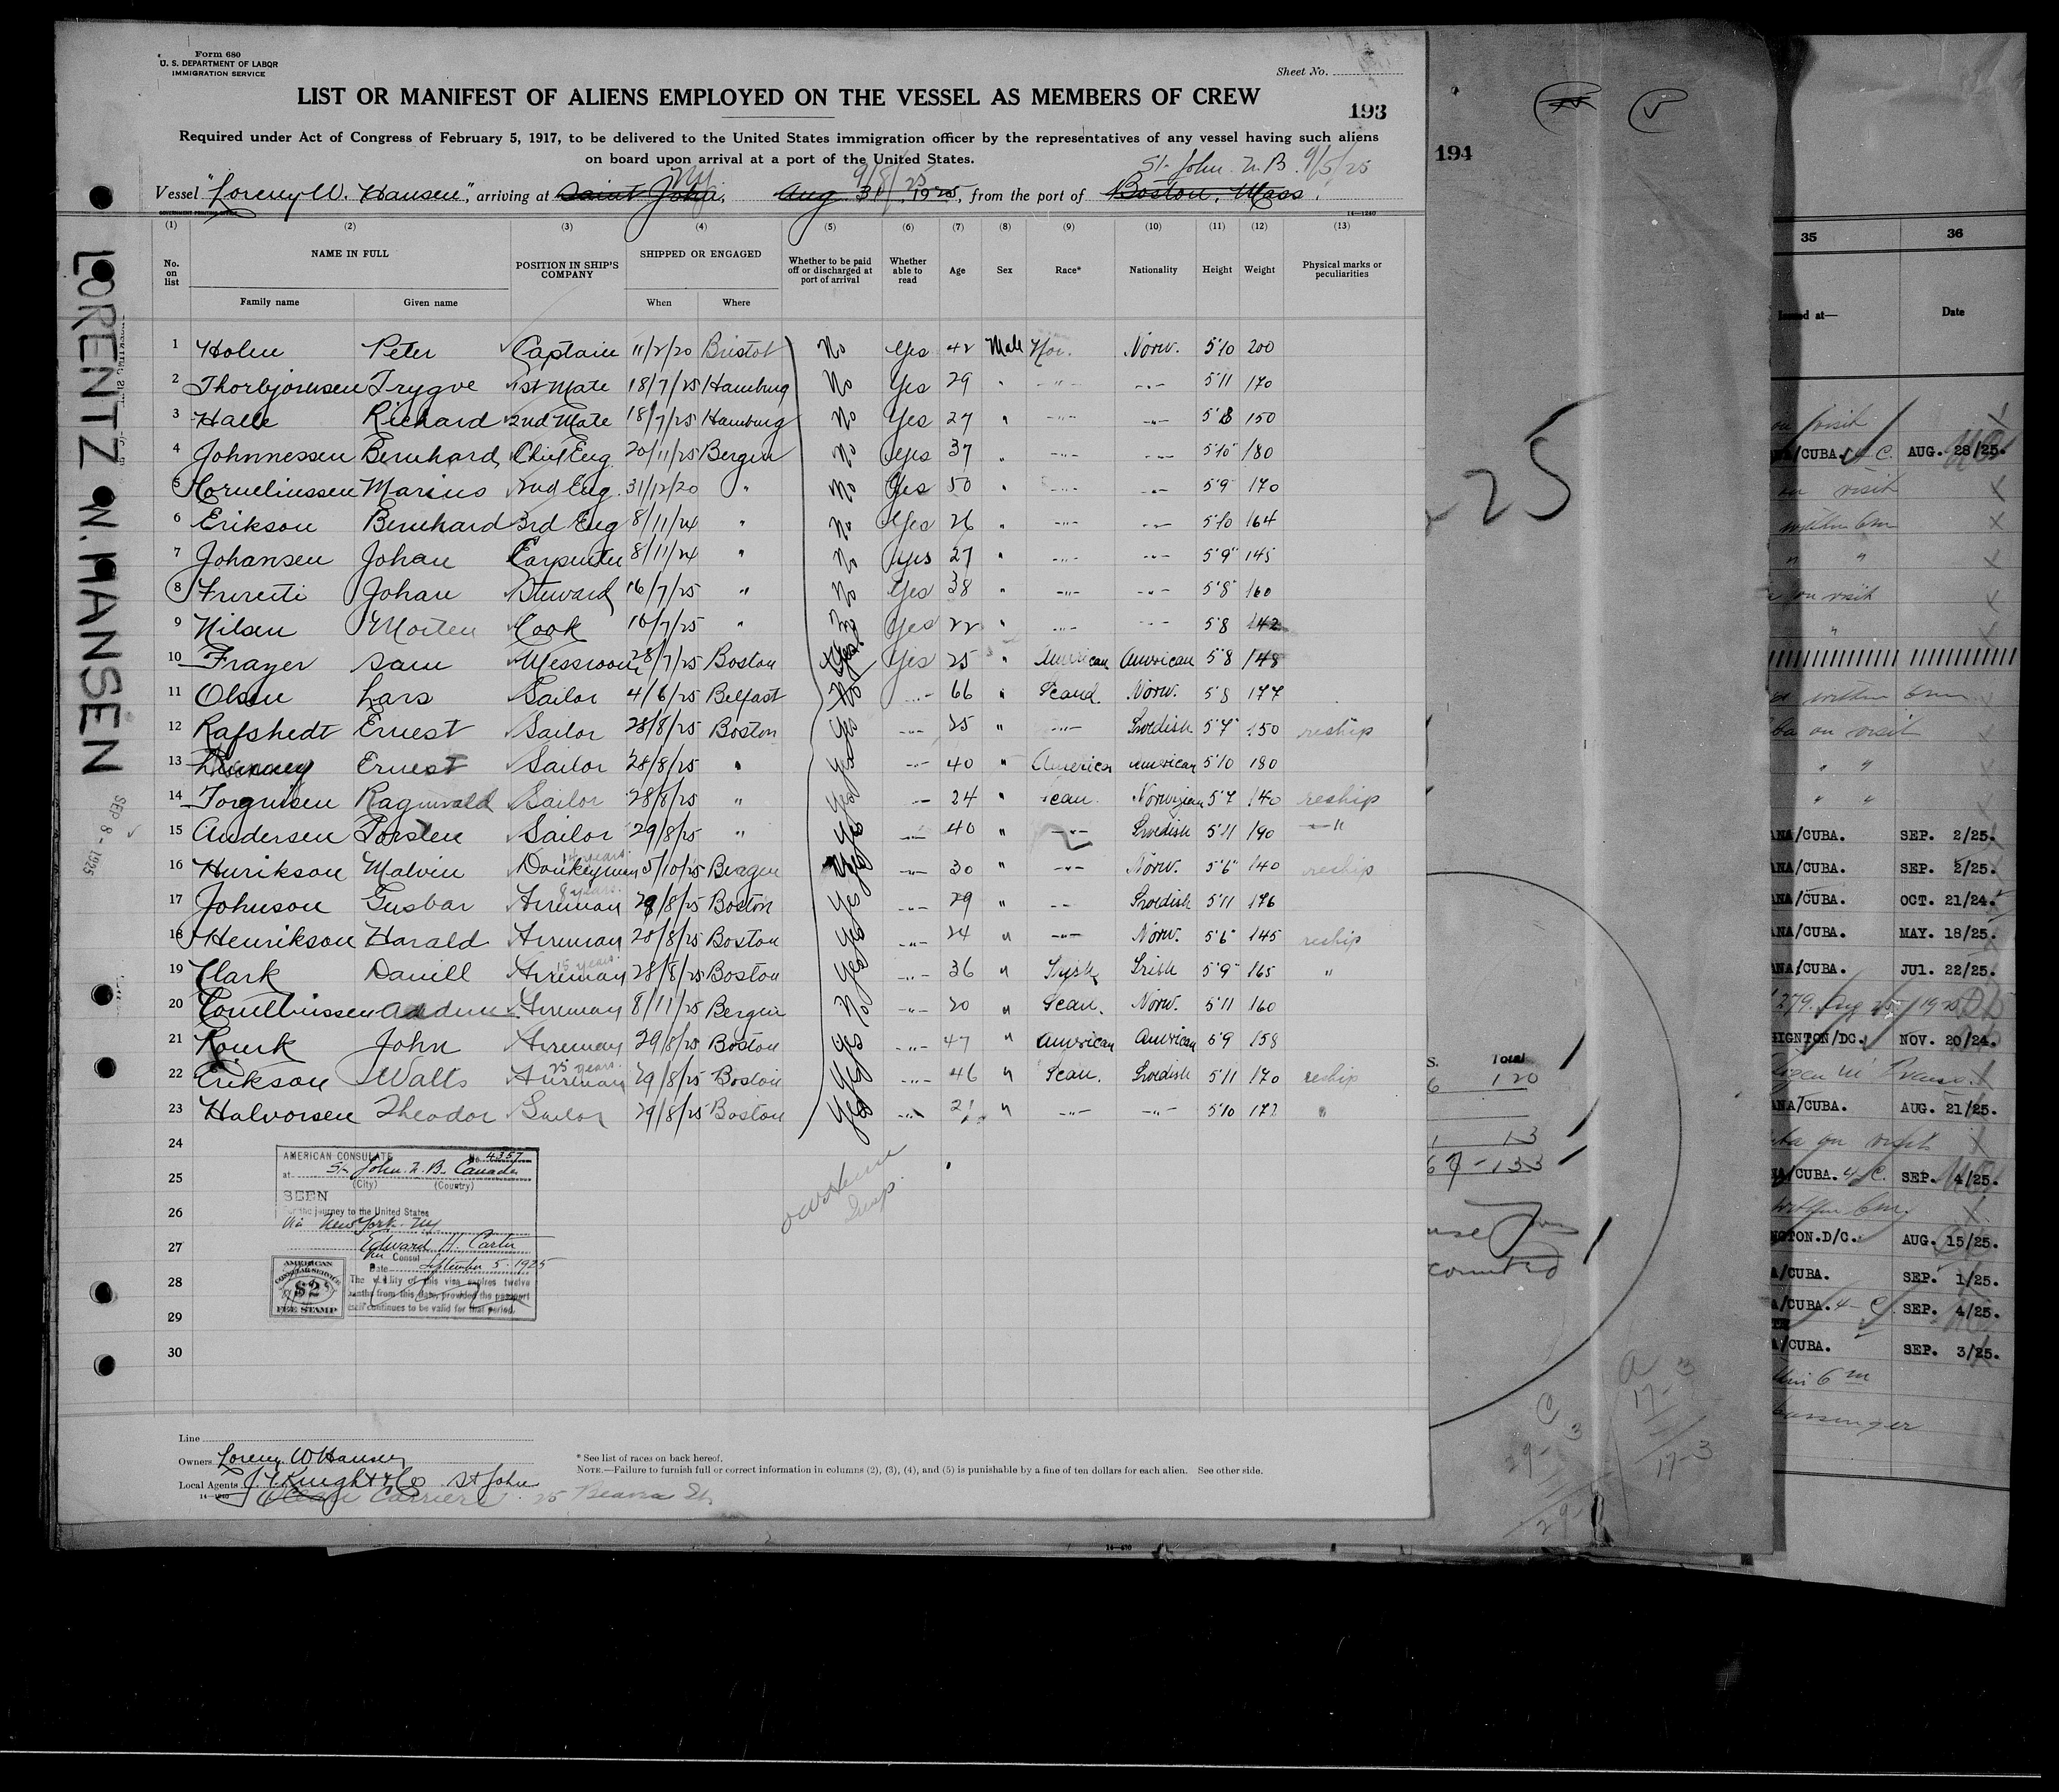 Form 680
U. S. DEPARTMENT OF LABOR
IMMIGRATION SERVICE
Sheet No.
LIST OR MANIFEST OF ALIENS EMPLOYED ON THE VESSEL AS MEMBERS OF CREW
193
Required under Act of Congress of February 5, 1917, to be delivered to the United States immigration officer by the representatives of any vessel having such aliens
on board upon arrival at a port of the United States.
NY 9/8/25 St. John. N.B. 9/5/25
Vessel "Lorenz W. Hansen", arriving at Saint John, Aug 31, 1925, from the port of Boston, Mass.
GOVERNMENT PRINTING OFFICE 14—1240
(1) (2) (3) (4) (5) (6) (7) (8) (9) (10) (11) (12) (13)
No. on list NAME IN FULL POSITION IN SHIP'S COMPANY SHIPPED OR ENGAGED Whether to be paid off or discharged at port of arrival Whether able to read Age Sex Race* Nationality Height Weight Physical marks or peculiarities
Family name Given name When Where
1 Holm Peter Captain 11/2/20 Bristol No Yes 42 Male Nor. Norw. 5'10 200
2 Thorbjornsen Trygve 1st Mate 18/7/25 Hamburg No Yes 29 " -"- -"- 5'11 170
3 Halle Richard 2nd Mate 18/7/25 Hamburg No Yes 27 " -"- -"- 5'8 150
4 Johnnessen Bernhard Chief Eng 20/11/25 Bergen No Yes 37 " -"- -"- 5'10" 180
5 Corneliussen Marius 2nd Eng. 31/12/20 " No Yes 50 " -"- -"- 5'9" 170
6 Erikson Bernhard 3rd Eng 8/11/24 " No Yes 26 " -"- -"- 5'10 164
7 Johansen Johan Carpenter 8/11/24 " No Yes 27 " -"- -"- 5'9" 145
8 Johan Steward 16/7/25 " No Yes 38 " -"- -"- 5'8" 160
9 Nilsen Morten Cook 16/7/25 " No Yes 22 " -"- -"- 5'8 142
10 Frazer Sam Messroom 28/7/25 Boston Yes Yes 25 " American American 5'8 148
11 Olsen Lars Sailor 4/6/25 Belfast No -"- 66 " Scand. Norw. 5'8 177
12 Rafshedt Ernest Sailor 28/8/25 Boston Yes -"- 25 " -"- Swedish 5'7" 150 reship
13 Ernest Sailor 28/8/25 " Yes -"- 40 " American American 5'10 180
14 Torgnisen Ragnvald Sailor 28/8/25 " Yes -"- 24 " Scan. Norwegian 5'7 140 reship
15 Andersen Torsten Sailor 29/8/25 " Yes -"- 40 " -"- Swedish 5'11 190 -"-
16 Henrikson Malvin Donkeyman 5/10/25 Bergen Yes -"- 30 " -"- Norw. 5'6" 140 reship
8 years.
17 Johnson Gustav Fireman 28/8/25 Boston Yes -"- 29 " -"- Swedish 5'11 176
18 Henrikson Harald Fireman 28/8/25 Boston Yes -"- 24 " -"- Norw. 5'6" 145 reship
15 years.
19 Clark Daniell Fireman 28/8/25 Boston Yes -"- 36 " Irish Irish 5'9" 165 "
20 Fireman 8/11/25 Bergen No -"- 20 " Scan. Norw. 5'11 160
21 Rourk John Fireman 29/8/25 Boston Yes -"- 47 " American American 5'9 158
25 years.
22 Erikson Walts Fireman 29/8/25 Boston Yes -"- 46 " Scan. Swedish 5'11 170 reship
23 Halvorsen Theodor Sailor 29/8/25 Boston Yes -"- 21 " -"- -"- 5'10 172 "
24
25
26
27
28
29
30
AMERICAN CONSULATE No. 4357
at St. John. N.B. Canada
(City) (Country)
SEEN
For the journey to the United States
via New York. NY
Edward H. Carter
Consul
Date September 5-1925
The validity of this visa expires twelve
months from this date, provided the passport
continues to be valid for that period.
AMERICAN
CONSULAR SERVICE
$2
FEE STAMP
Line
Owners Lorenz W Hansen
Local Agents J.T. Knight & Co St John
Ocean Carriers 25 Beaver St.
14—1240
* See list of races on back hereof.
NOTE.—Failure to furnish full or correct information in columns (2), (3), (4), and (5) is punishable by a fine of ten dollars for each alien. See other side.
LORENTZ W. HANSEN
SEP 8 - 1925
194
25
Total
6 120
1 13
67 - 133
counted
C
29-3
A 3
17-3
17-3
14—430
35 36
Issued at— Date
on visit
/CUBA. 4 C. AUG. 28/25.
on visit
within 6m
" "
on visit
"
within 6m
on visit
" "
" "
ANA/CUBA. SEP. 2/25.
ANA/CUBA. SEP. 2/25.
ANA/CUBA. OCT. 21/24.
ANA/CUBA. MAY. 18/25.
ANA/CUBA. JUL. 22/25.
279. Aug 25/1925
HIGNTON/DC. NOV. 20/24.
ANA/CUBA. AUG. 21/25.
on visit
NA/CUBA. 4-C. SEP. 4/25.
within 6m.
NGTON.D/C. AUG. 15/25.
A/CUBA. SEP. 1/25.
A/CUBA. 4-C SEP. 4/25.
A/CUBA. SEP. 3/25.
6 m
passenger